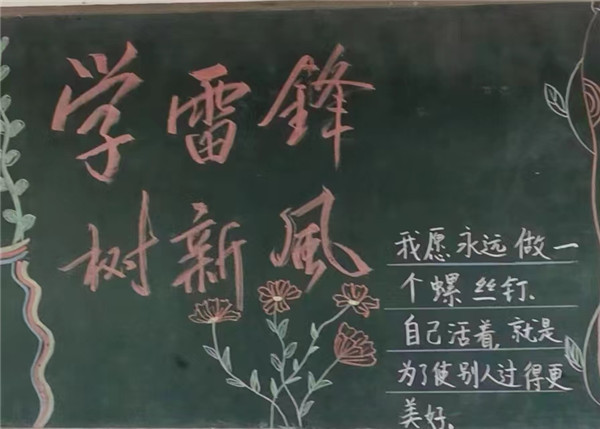 学雷鋒
树新風
我愿永远做一
个螺丝钉、
自己活着,就是
为了使别人过得更
美好、